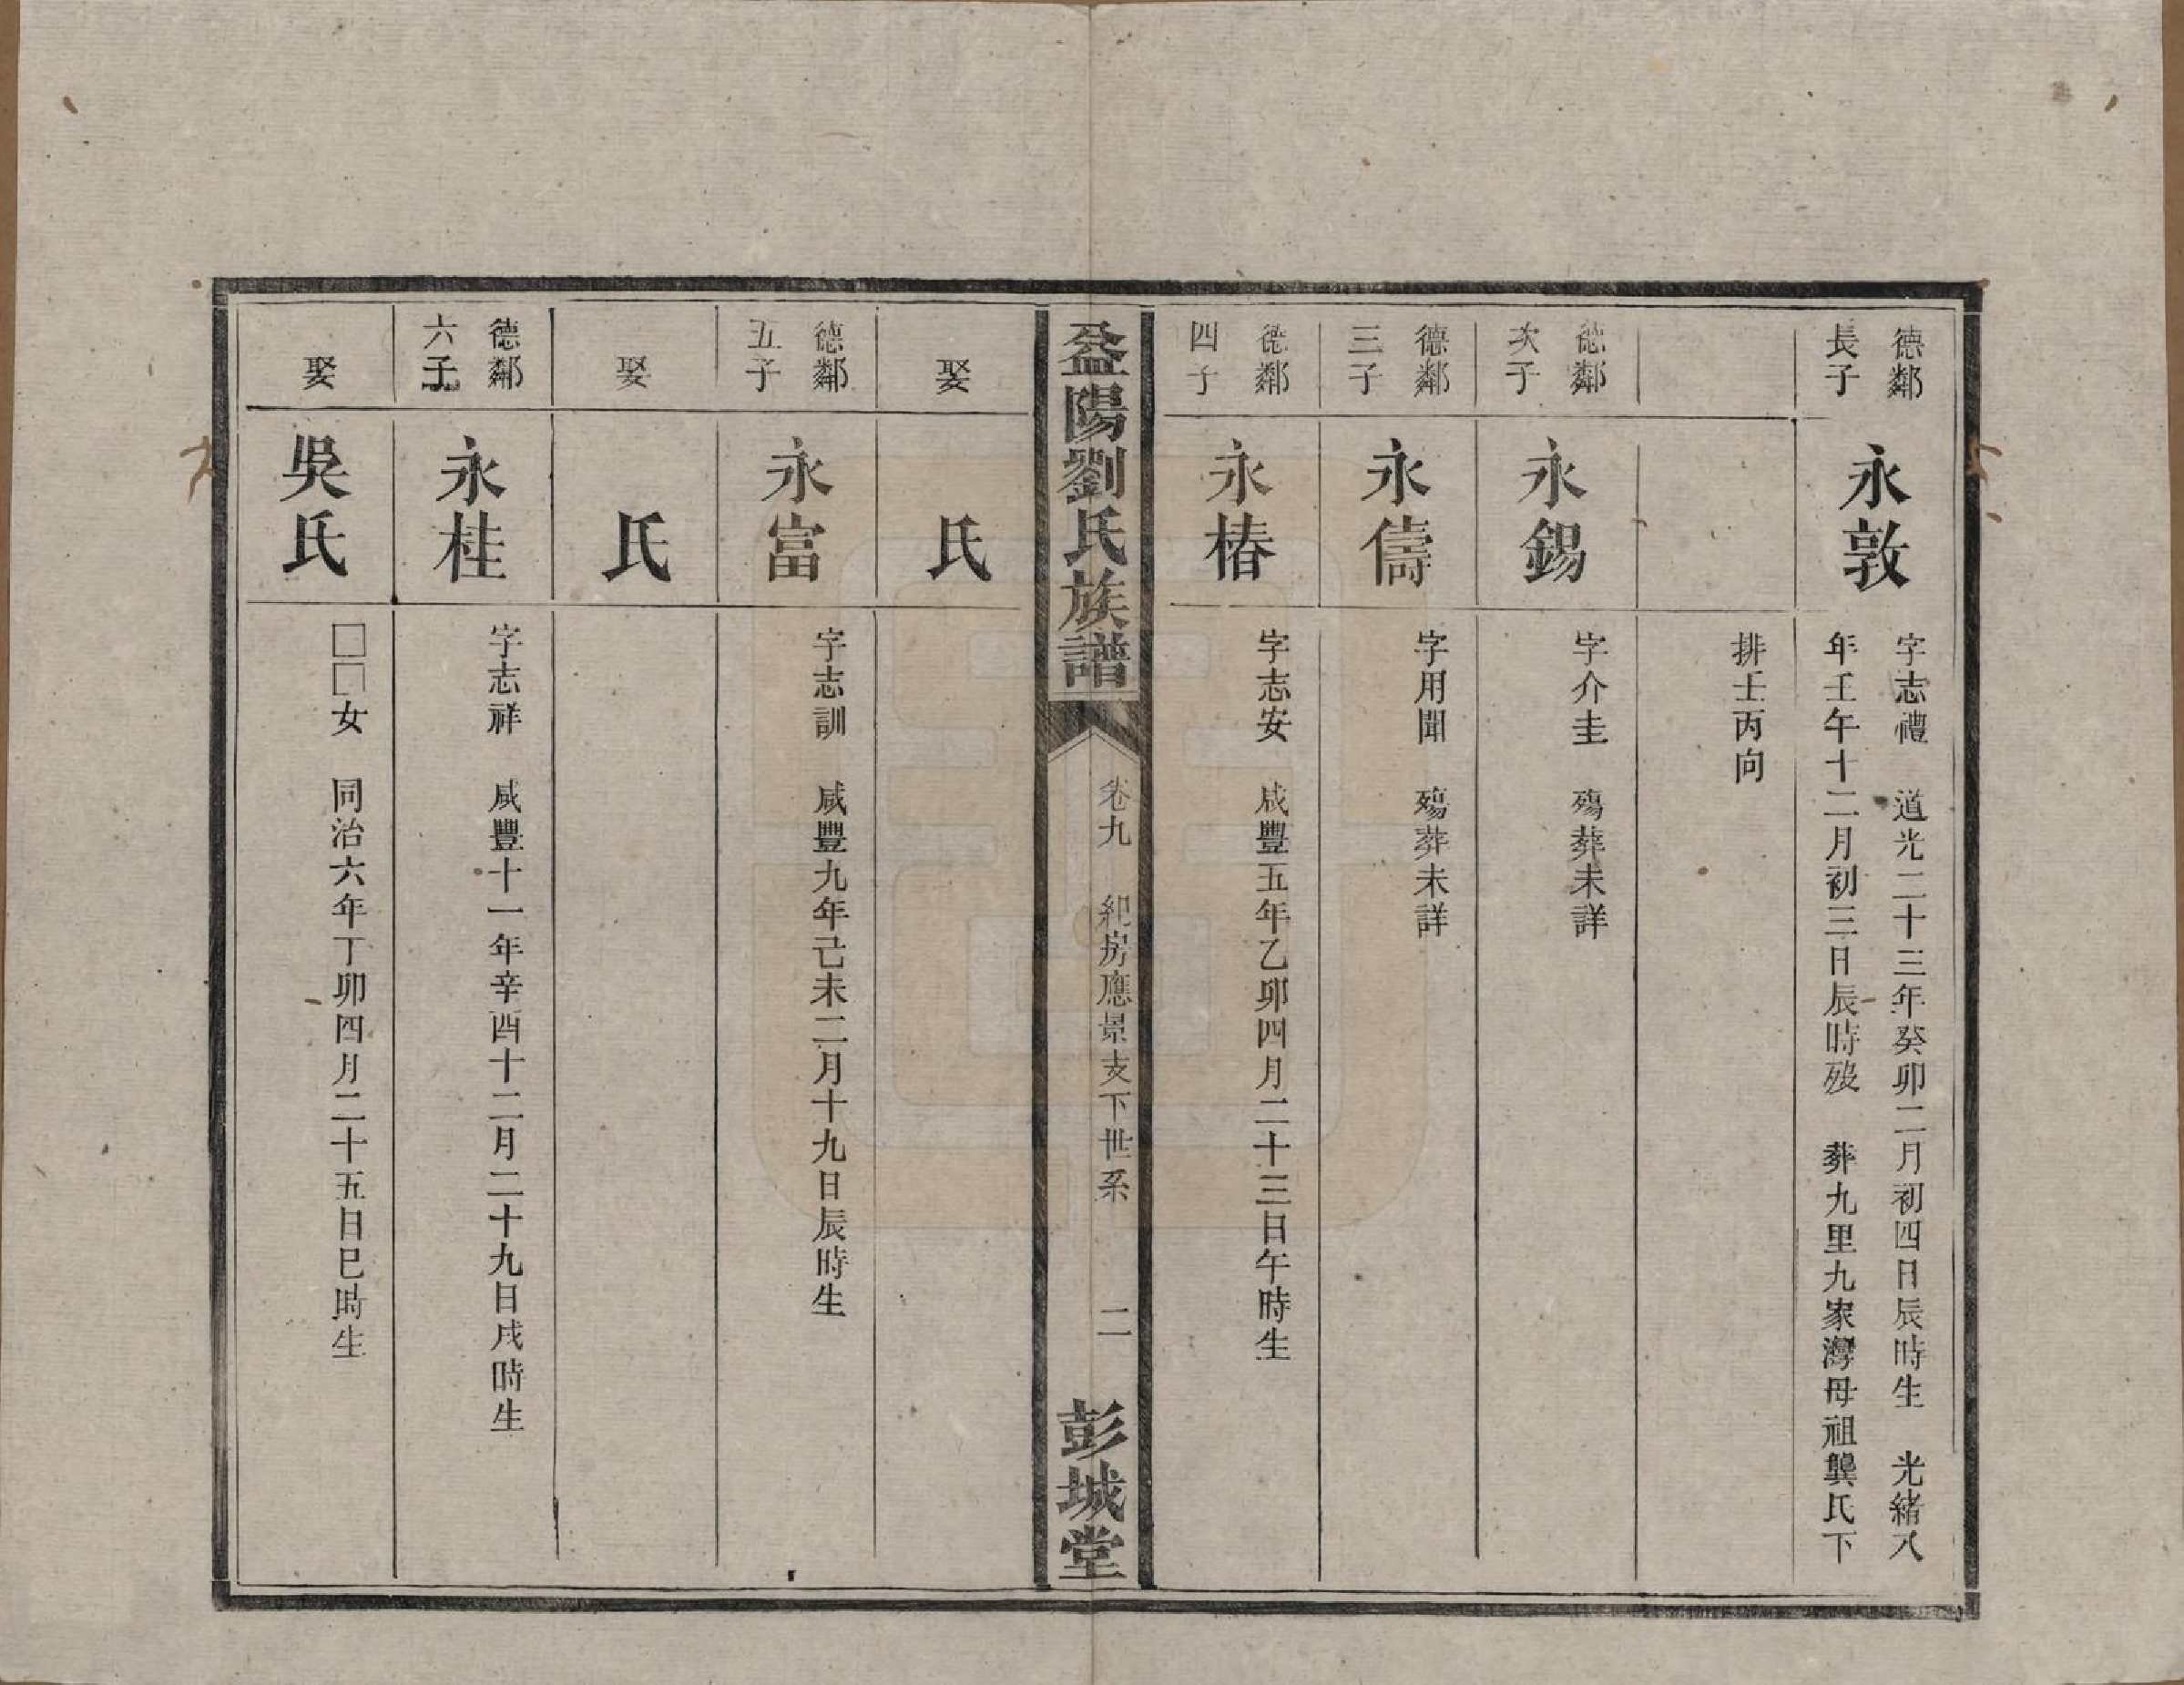 德鄰
長子
永敦
字志禮　道光二十三年癸卯二月初四日辰時生　光緒八
年壬午十二月初三日辰時歿　葬九里九家灣母祖龔氏下
排壬丙向
德鄰
次子
永錫
字介圭　殤葬未詳
德鄰
三子
永儔
字用聞　殤葬未詳
德鄰
四子
永椿
字志安　咸豐五年乙卯四月二十三日午時生
益陽劉氏族譜
卷九　紀房應景支下世系
二
彭城堂
娶
氏
德鄰
五子
永富
字志訓　咸豐九年己未二月十九日辰時生
娶
氏
德鄰
六子
永桂
字志祥　咸豐十一年辛酉十二月二十九日戌時生
娶
吳氏
□□女　同治六年丁卯四月二十五日巳時生